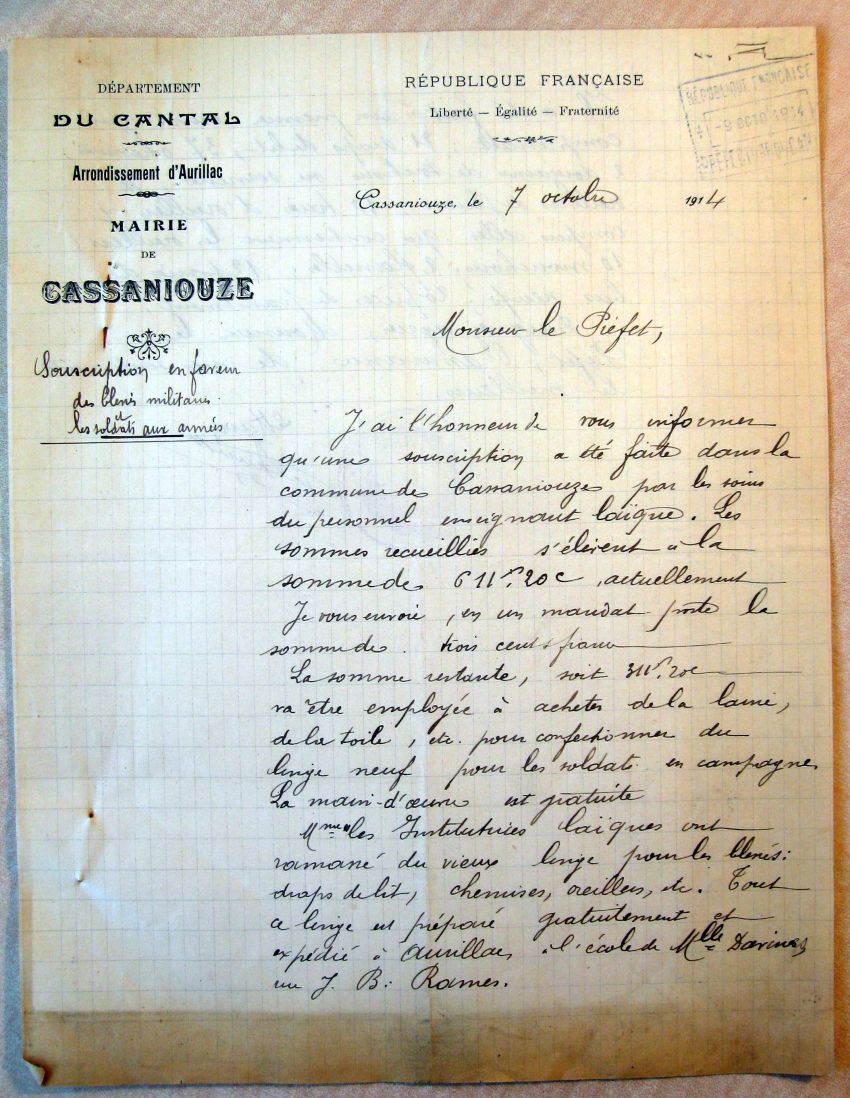 DÉPARTEMENT
DU CANTAL
Arrondissement d'Aurillac
MAIRIE
DE
CASSANIOUZE
RÉPUBLIQUE FRANÇAISE
Liberté — Égalité — Fraternité
RÉPUBLIQUE FRANÇAISE
9 OCTO 1914
Cassaniouze, le 7 octobre 1914
Souscription en faveur
des blessés militaires
et
les soldats aux armées
Monsieur le Préfet,
J'ai l'honneur de vous informer
qu'une souscription a été faite dans la
commune de Cassaniouze par les soins
du personnel enseignant laïque. Les
sommes recueillies s'élèvent à la
somme de 611f,20c, actuellement
Je vous envoie, en un mandat poste la
somme de trois cents francs
La somme restante, soit 311f,20c
va être employée à acheter de la laine,
de la toile, etc. pour confectionner du
linge neuf pour les soldats en campagne
La main-d'œuvre est gratuite
Mmes les Institutrices laïques ont
ramassé du vieux linge pour les blessés:
draps de lit, chemises, oreillers, etc. Tout
ce linge est préparé gratuitement et
expédié à Aurillac à l'école de Mlle
rue J. B. Rames.